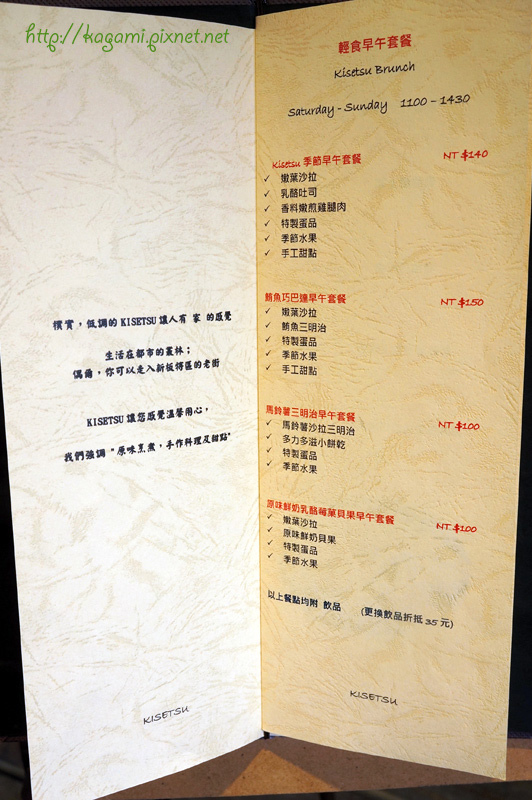 http://kagami.pixnet.net
樸實，低調的 KISETSU 讓人有 家 的感覺
生活在都市的叢林；
偶爾，你可以走入新板特區的老街
KISETSU 讓您感覺溫馨用心，
我們強調 "原味烹煮，手作料理及甜點"
KISETSU
輕食早午套餐
Kisetsu Brunch
Saturday - Sunday 1100 - 1430
Kisetsu 季節早午套餐 NT $140
✓ 嫩葉沙拉
✓ 乳酪吐司
✓ 香料嫩煎雞腿肉
✓ 特製蛋品
✓ 季節水果
✓ 手工甜點
鮪魚巧巴達早午套餐 NT $150
✓ 嫩葉沙拉
✓ 鮪魚三明治
✓ 特製蛋品
✓ 季節水果
✓ 手工甜點
馬鈴薯三明治早午套餐 NT $100
✓ 馬鈴薯沙拉三明治
✓ 多力多滋小餅乾
✓ 特製蛋品
✓ 季節水果
原味鮮奶乳酪莓菓貝果早午套餐 NT $100
✓ 嫩葉沙拉
✓ 原味鮮奶貝果
✓ 特製蛋品
✓ 季節水果
以上餐點均附 飲品 (更換飲品折抵 35 元)
KISETSU